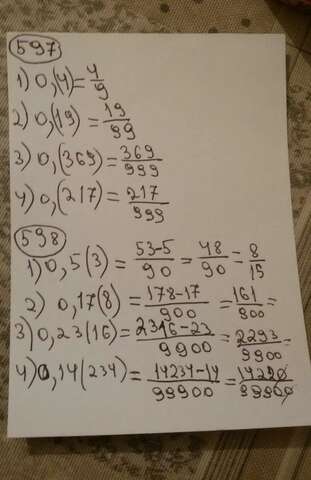 597
1) 0,(4) = 4/9
2) 0,(19) = 19/99
3) 0,(369) = 369/999
4) 0,(217) = 217/999
598
1) 0,5(3) = 53-5/90 = 48/90 = 8/15
2) 0,17(8) = 178-17/900 = 161/900 =
3) 0,23(16) = 2316-23/9900 = 2293/9900 =
4) 0,14(234) = 14234-14/99900 = 14220/99900